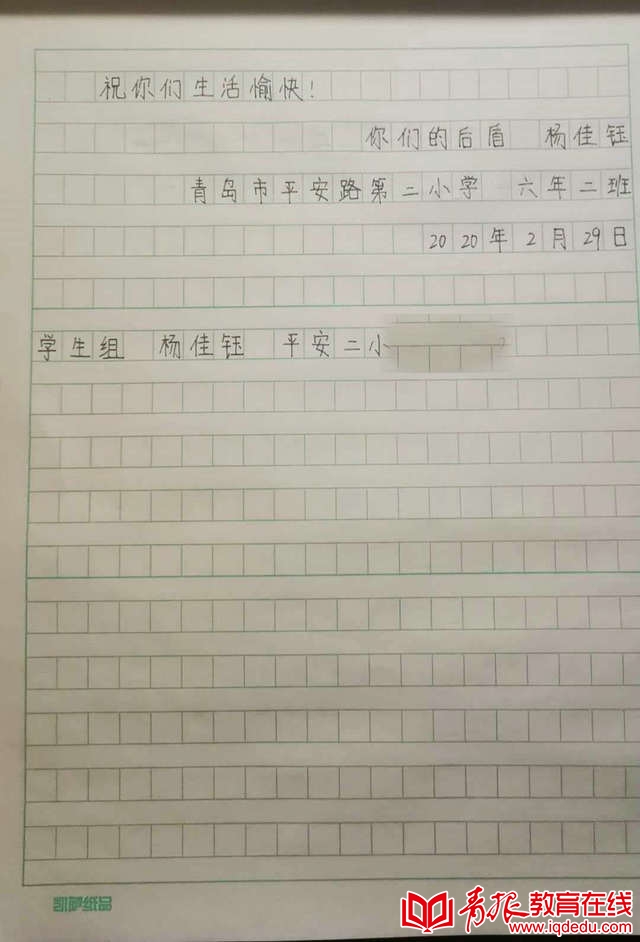 祝你们生活愉快!
你们的后盾 杨佳钰
青岛市平安路第二小学 六年二班
2020年2月29日
学生组 杨佳钰 平安二小
青报教育在线
www.iqdedu.com